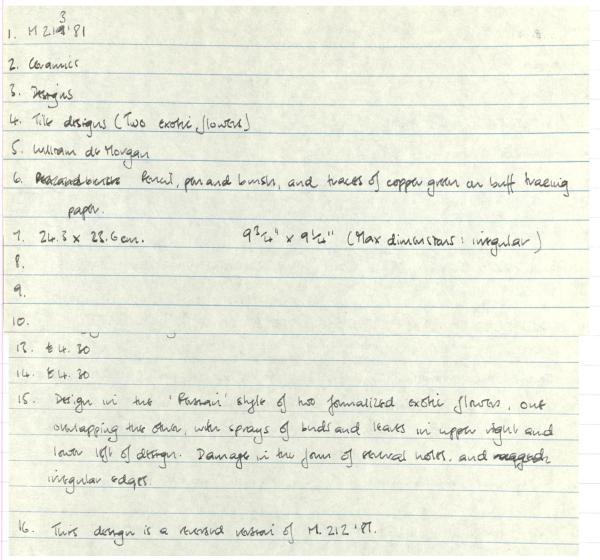 1. M 213 '81
2. Ceramics
3. Designs
4. Tile designs (Two exotic flowers)
5. William de Morgan
6. Pencil, pen and brush, and traces of copper green on buff tracing
paper.
7. 24.3 x 23.6 cm. 9 3/4" x 9 1/4" (Max dimensions: irregular)
8.
9.
10.
13. £4.30
14. £4.30
15. Design in the 'Persian' style of two formalized exotic flowers, one
overlapping the other, with sprays of buds and leaves in upper right and
lower left of design. Damage in the form of several holes, and
irregular edges.
16. This design is a reversed version of M.212 '81.